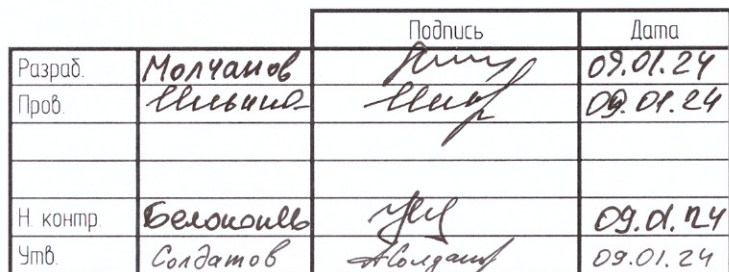 Подпись Дата
Разраб. Молчанов 09.01.24
Пров. 09.01.24
Н. контр. 09.01.24
Утв. Солдатов 09.01.24